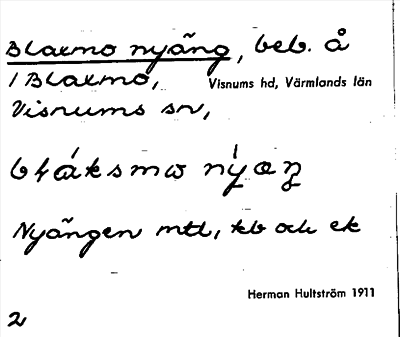 Blaxmo nyäng, beb. å
1 Blaxmo, Visnums hd, Värmlands län
Visnums sn,
Nyängen mtl, kb och ek
Herman Hultström 1911
2